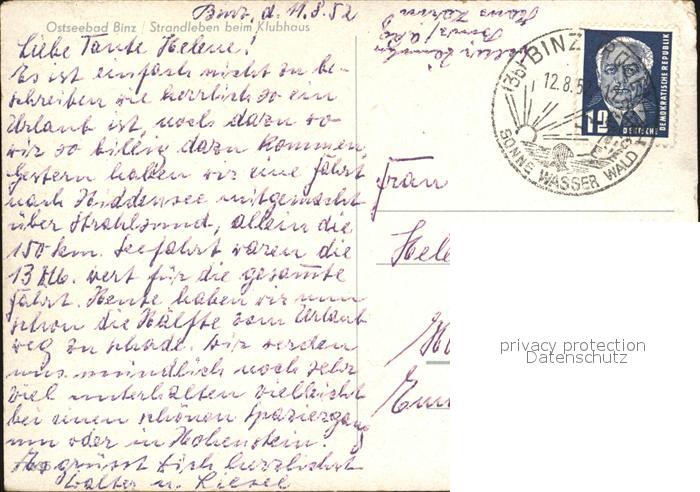 Binz, d. 11.8.52
Ostseebad Binz / Strandleben beim Klubhaus
Liebe Tante Helene!
Es ist einfach nicht zu be-
schreiben wie herrlich so ein
Urlaub ist, noch dazu wo
wir so billig dazu kommen.
Gestern haben wir eine Fahrt
nach Hiddensee mitgemacht
über Strahlsund, allein die
150 km. Seefahrt waren die
13 DM. wert für die gesamte
Fahrt. Heute haben wir nun
schon die Hälfte vom Urlaub
weg zu schade. Wir werden
uns mündlich noch sehr
viel unterhalten vielleicht
bei einen schönen Spaziergang
um oder in Hohenstein.
Es grüsst Dich herzlichst
Walter u. Liesel
Binz/
Haus
BINZ
12.8.52
SONNE WASSER WALD
12
DEUTSCHE
DEMOKRATISCHE REPUBLIK
Frau
Hele
privacy protection
Datenschutz